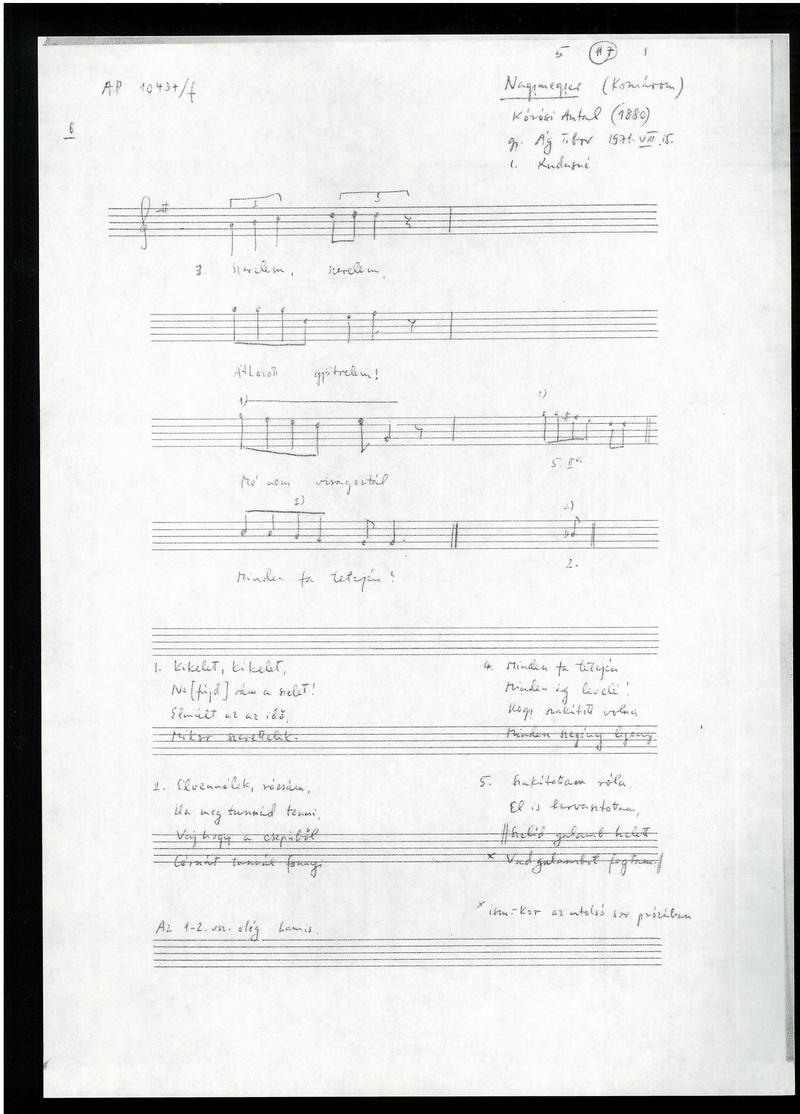 5 117 1
AP 10437/f
Nagymegyer (Komárom)
Kórósi Antal (1880)
gy. Ág Tibor 1971. VIII. 15.
1. Kudasné
6
3 3
3. Szerelem, szerelem,
Átkozott gyötrelem!
1) 1)
Mé nem virágoztál 5. II
2) 2)
Minden fa tetején? 2.
1. Kikelet, kikelet,
Ne [fújd] rám a szelet!
Elmúlt az az idő,
Mikor szerettelek.
2. Elvennélek, rózsám,
Ha meg tunnád tenni,
Vaj hogy a csepüből
Cérnát tunnál fonnyi
4. Minden fa tetején
Minden ág levelé!
Hogy szakított volna
Minden szegíny legény.
5. Szakítottam róla,
El is hervasztottam,
Szelíd galamb helett
x Vadgalambot fogtam.
x ism.-kor az utolsó sor prózában
Az 1-2. vsz. elég hamis.